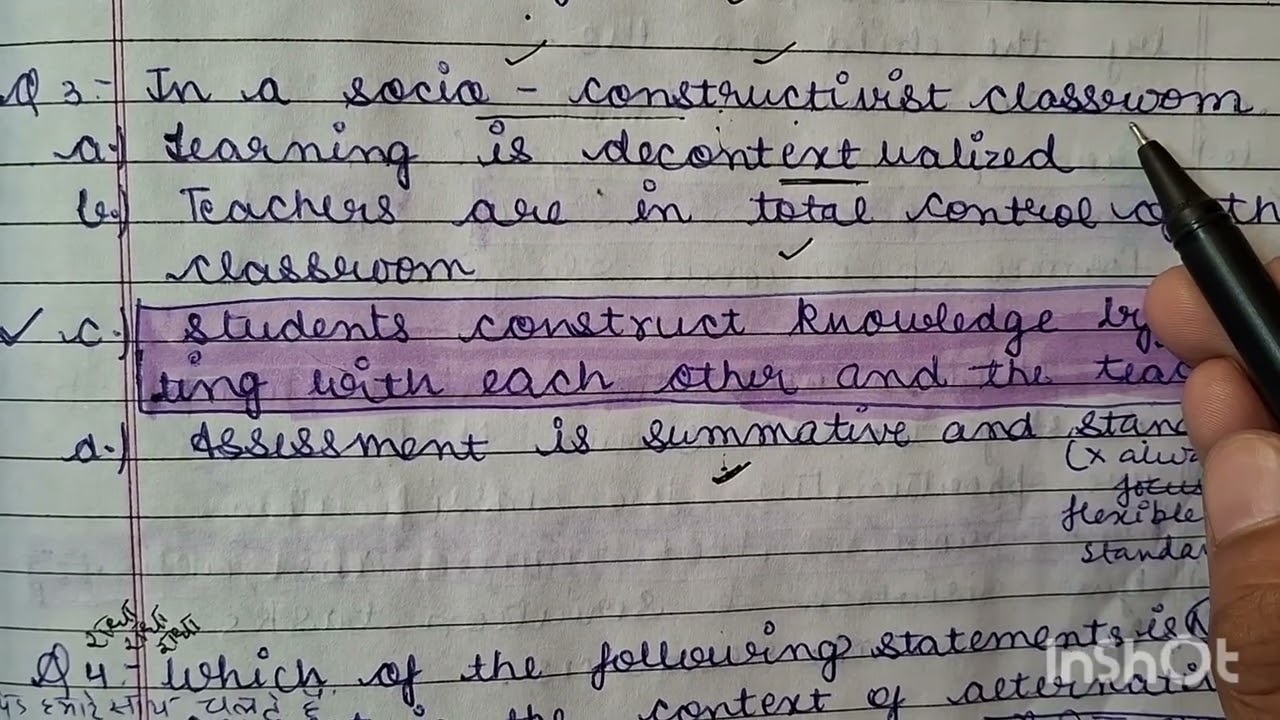 Q 3:- In a socio - constructivist classroom
a.) Learning is decontextualized
b.) Teachers are in total control of th
classroom
✓ c.) students construct knowledge by
ting with each other and the teac
d.) Assessment is summative and stand
(x alwa
focus
flexible
standa
Q 4 :- which of the following statements is
context of alternati
InShOt